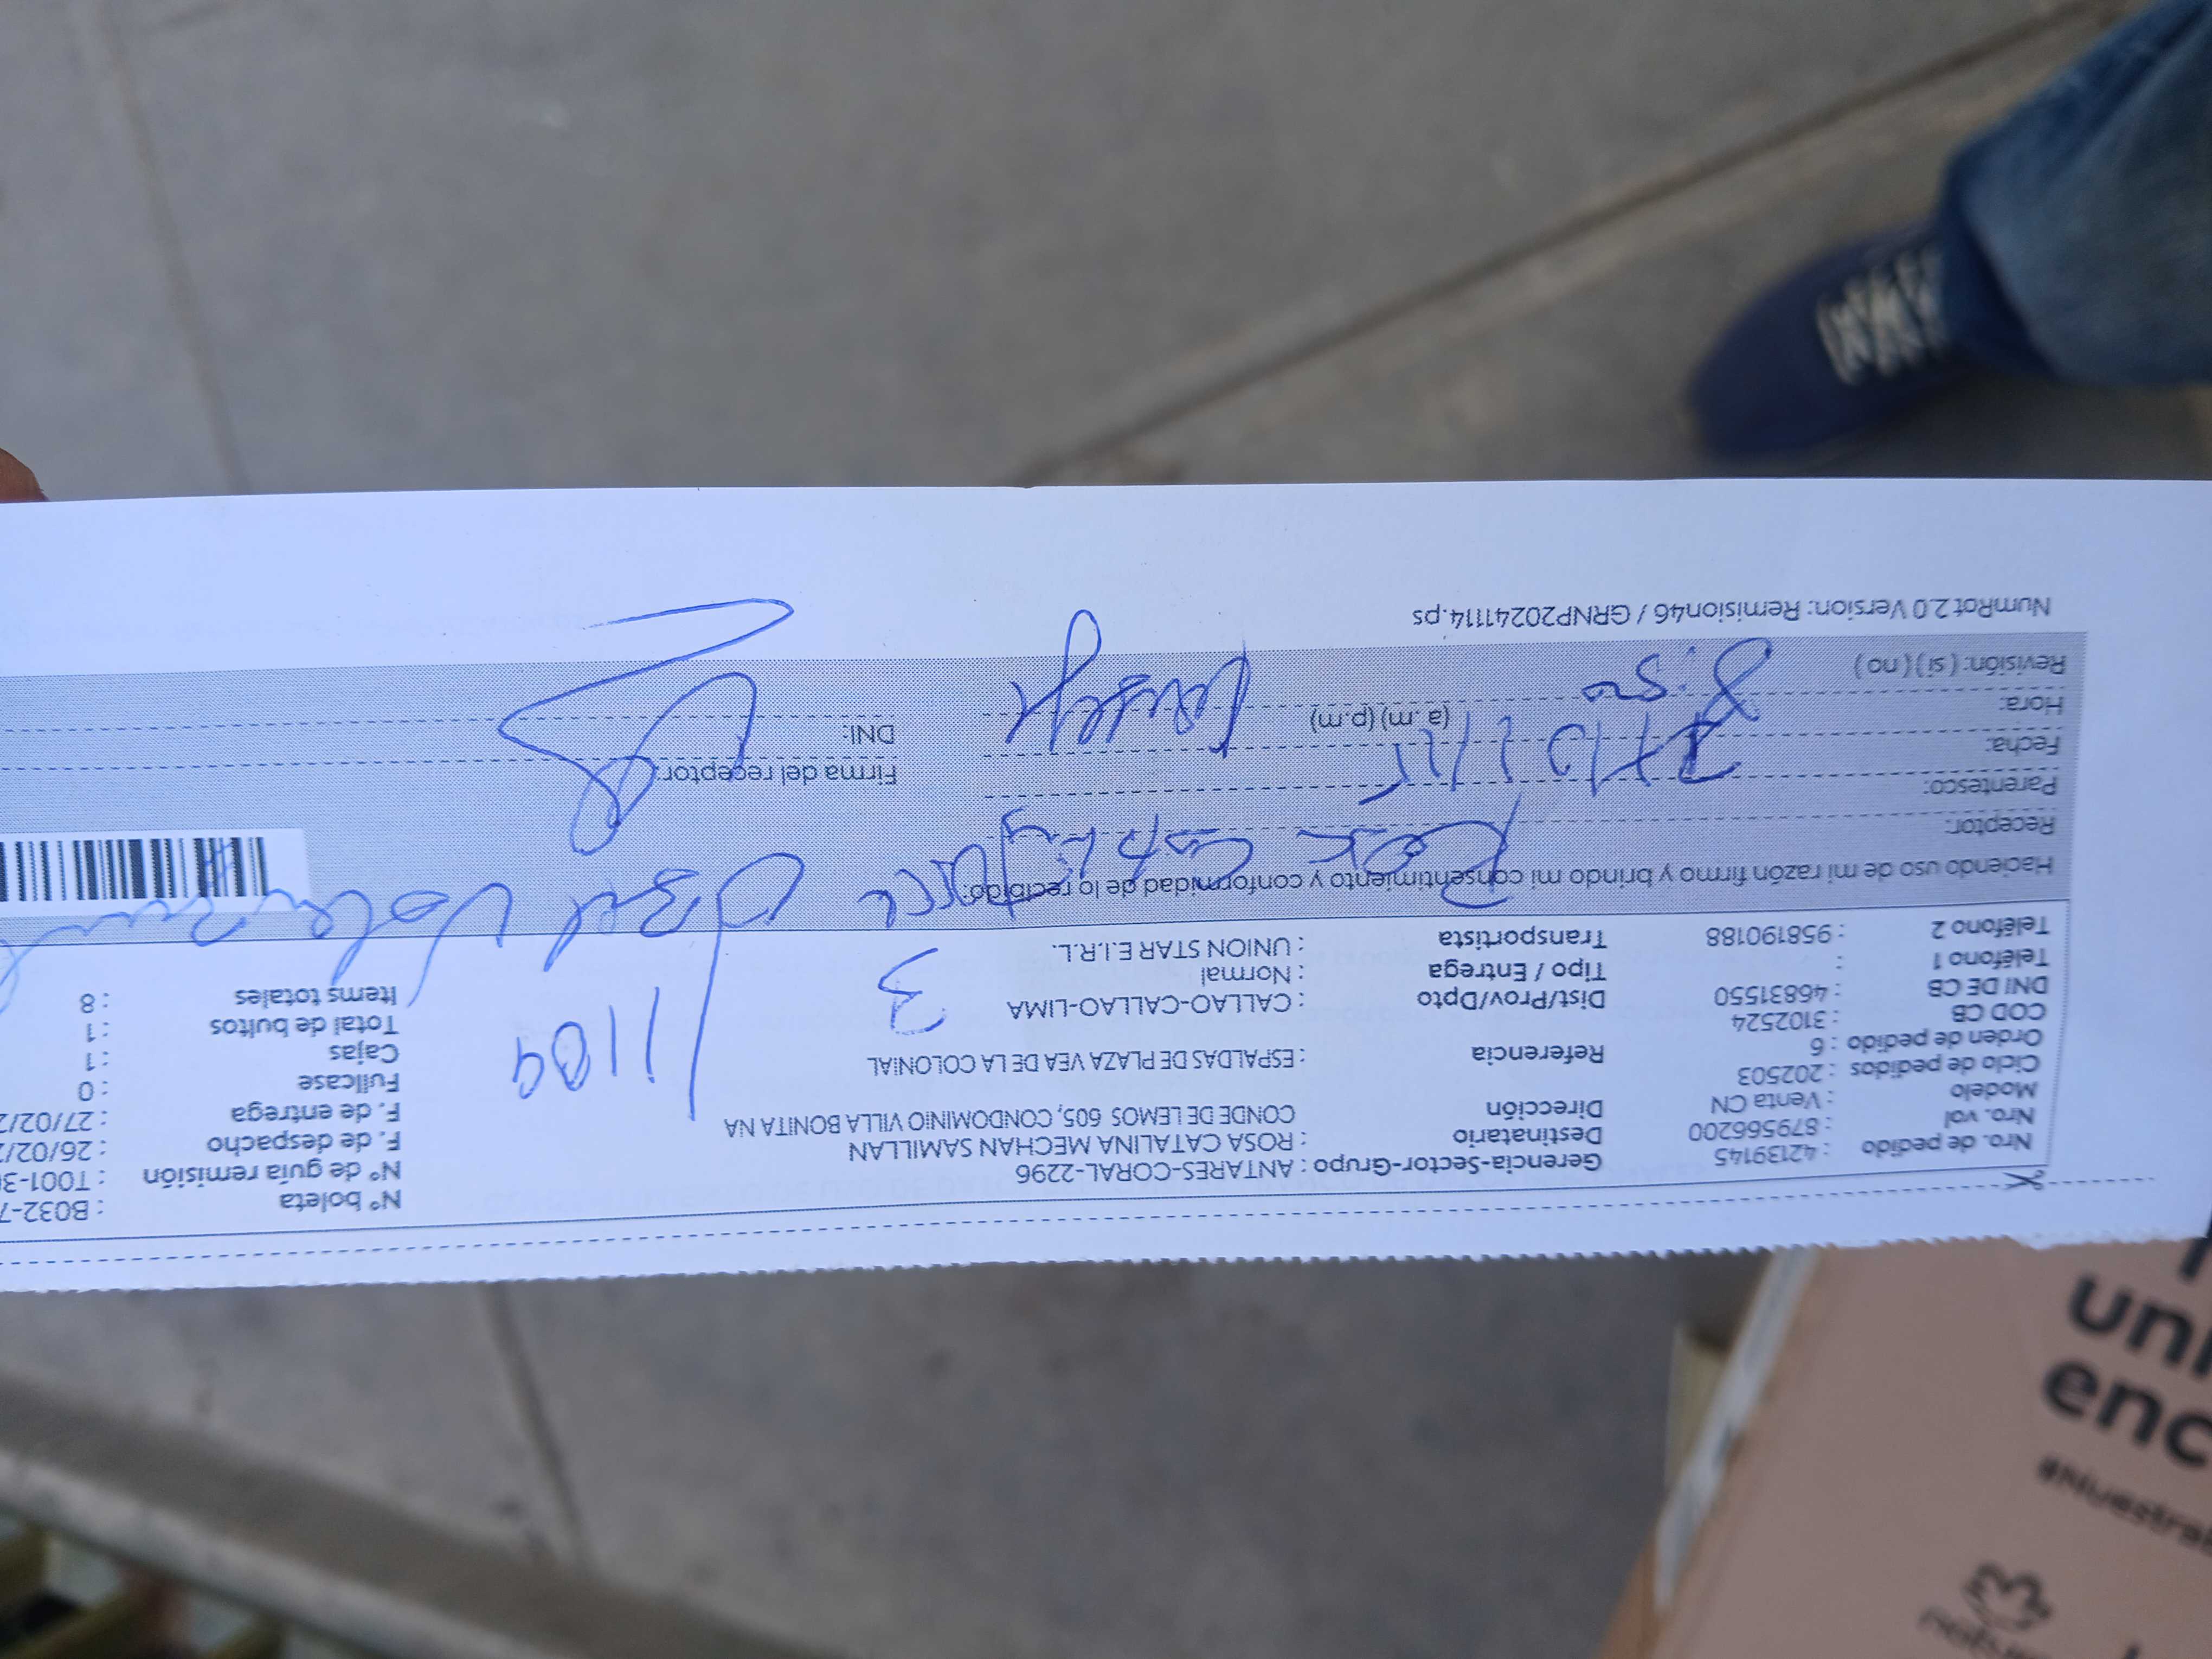 Nro. de pedido : 42139145
Nro. vol : 879566200
Modelo : Venta CN
Ciclo de pedidos : 202503
Orden de pedido : 6
COD CB : 3102524
DNI DE CB : 46831550
Teléfono 1 :
Teléfono 2 : 958190188
Gerencia-Sector-Grupo : ANTARES-CORAL-2296
Destinatario : ROSA CATALINA MECHAN SAMILLAN
Dirección CONDE DE LEMOS 605, CONDOMINIO VILLA BONITA NA
Referencia : ESPALDAS DE PLAZA VEA DE LA COLONIAL
Dist/Prov/Dpto : CALLAO-CALLAO-LIMA
Tipo / Entrega : Normal
Transportista : UNION STAR E.I.R.L.
N° boleta : B032-7
N° de guía remisión : T001-3
F. de despacho : 26/02/2
F. de entrega : 27/02/2
Fullcase : 0
Cajas : 1
Total de bultos : 1
Items totales : 8
1109
3
Haciendo uso de mi razón firmo y brindo mi consentimiento y conformidad de lo recibido:
Receptor:
Parentesco:
Fecha:
Hora: (a.m) (p.m)
Revisión: (si) (no)
Firma del receptor:
DNI:
NumRot 2.0 Version: Remision46 / GRNP20241114.ps
uni
enc
#Nuestra
natu